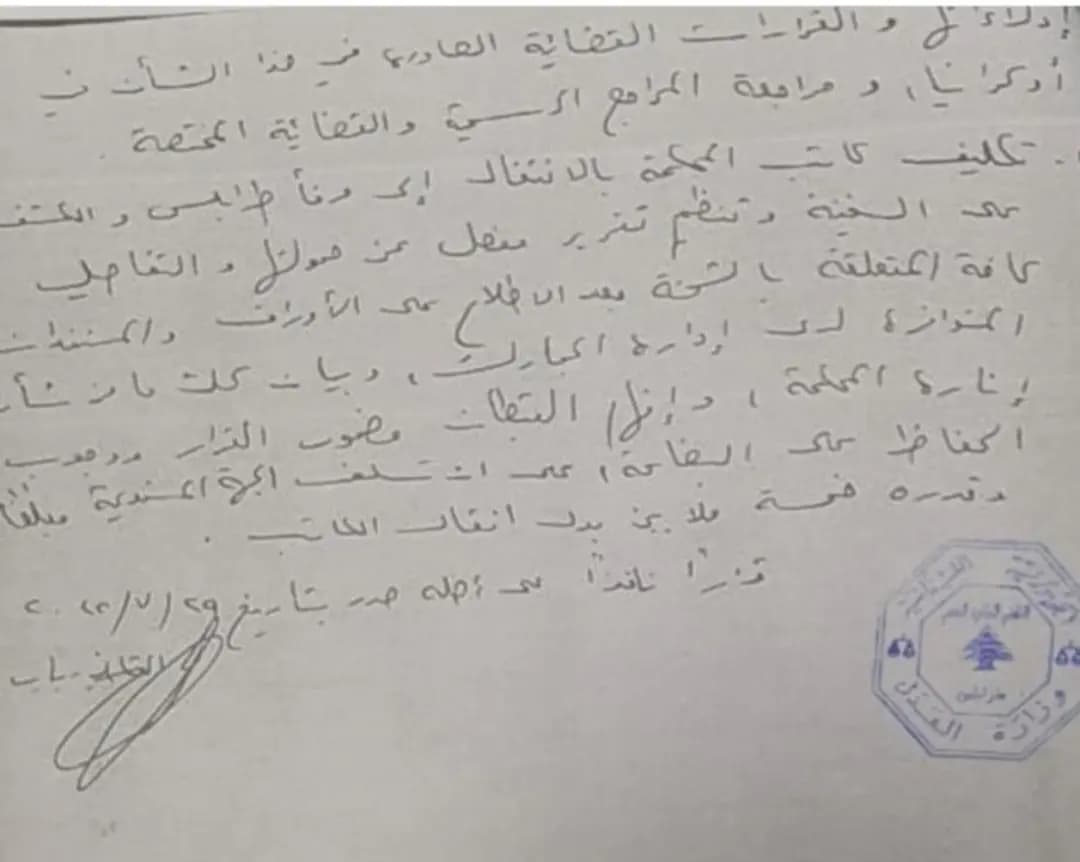 إدلاءاتها و القرارات القضائية الصادرة في هذا الشأن في
أوكرانيا، و مراجعة المراجع الرسمية والقضائية المختصة .
. تكليف كاتب المحكمة بالانتقال إلى مرفأ طرابلس و الكشف
على السفينة وتنظيم تقرير مفصل عن حمولتها و التفاصيل
كافة المتعلقة بالشحنة بعد الاطلاع على الأوراق والمستندات
المتوافرة لدى إدارة الجمارك، وبيان كل ما من شأن
إنارة المحكمة ، وإبلاغ القبطان مضمون القرار ووجوب
الحفاظ على البضاعة، على ان تسلف الجهة المستدعية مبلغاً
وقدره خمسة ملايين بدل انتقال الكاتب .
قراراً نافذاً على أصله صدر بتاريخ ٢٩/٧/٢٠٢٢
القاضي
وزارة العدل
طرابلس